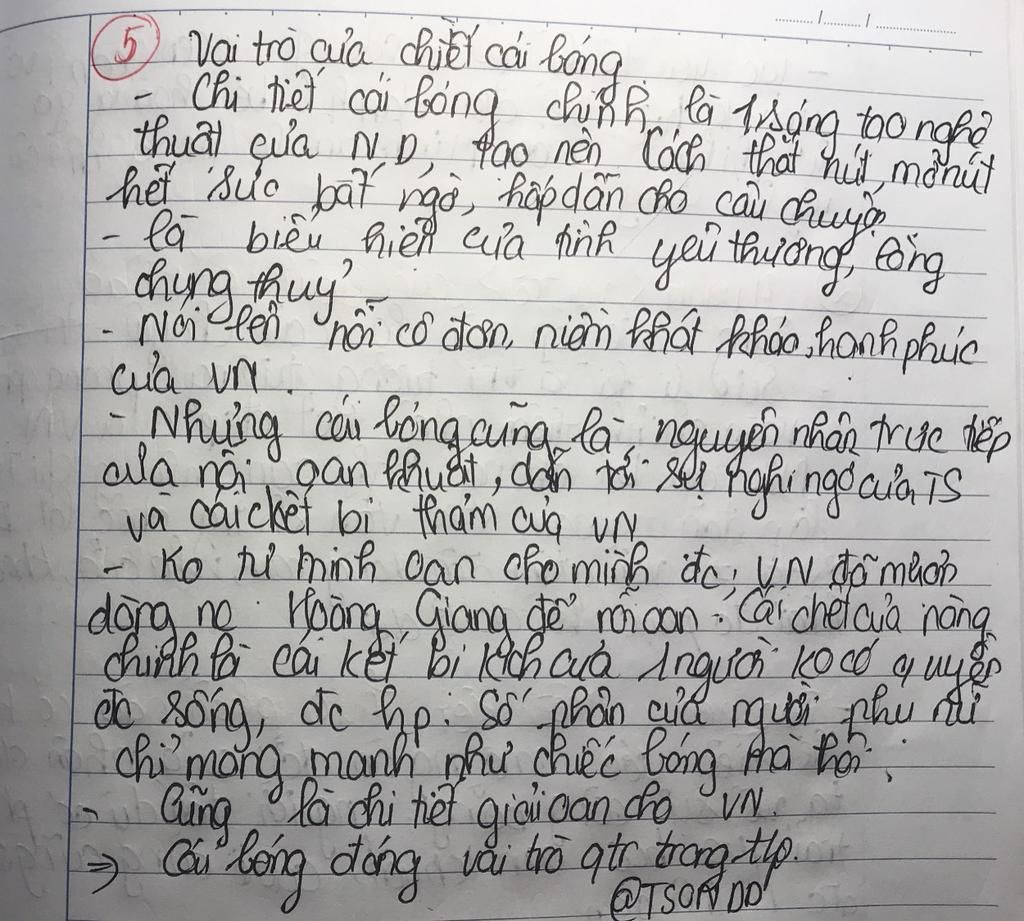 5 Vai trò của chiết cái bóng
- Chi tiết cái bóng chính là 1 sáng tạo nghệ
thuật của N.D, tạo nên cách thắt nút, mở nút
hết sức bất ngờ, hấp dẫn cho câu chuyện
- là biểu hiện của tình yêu thương, lòng
chung thuỷ
- Nói lên nỗi cô đơn, niềm khát khao, hạnh phúc
của VN.
- Nhưng cái bóng cũng là nguyên nhân trực tiếp
của nỗi oan khuất, dẫn tới sự nghi ngờ của TS
và cái kết bi thảm của VN
- Ko tự minh oan cho mình đc, VN đã mượn
dòng nc Hoàng Giang để rửi oan. Cái chết của nàng
chính là cái kết bi kịch của 1 người ko có quyền
đc sống, đc hp. Số phận của người phụ nữ
chỉ mong manh như chiếc bóng mà thôi.
- Cũng là chi tiết giải oan cho VN.
⇒ Cái bóng đóng vai trò qtr trong t/p.
@TSONDD